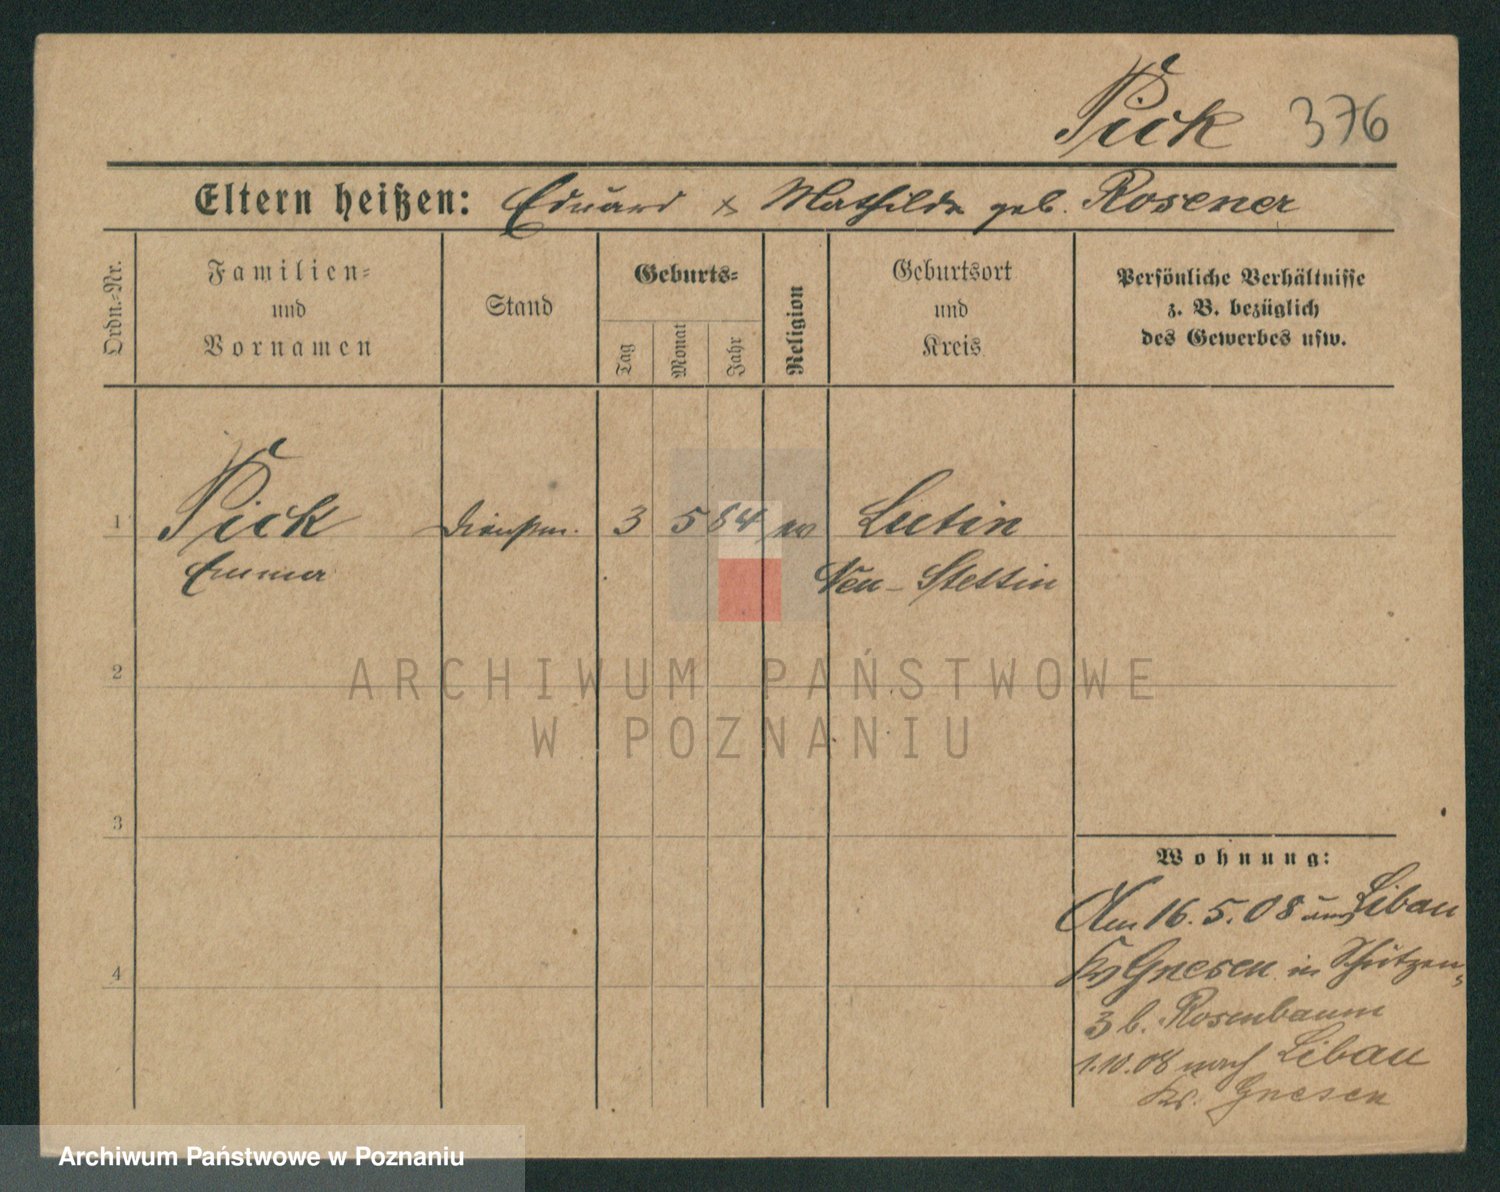 Pick 376
Eltern heißen: Eduard & Mathilde geb. Rosener
Ordn.-Nr.
Familien-
und
Vornamen
Stand
Geburts-
Tag
Monat
Jahr
Religion
Geburtsort
und
Kreis
Persönliche Verhältnisse
z. B. bezüglich
des Gewerbes usw.
1 Pick 3 5 84 ev Lutin
Emma Neu-Stettin
2
ARCHIWUM PAŃSTWOWE
W POZNANIU
3
Wohnung:
Am 16.5.08 aus Libau
Kr Gnesen in Schützen-
4
3 b. Rosenbaum
1.10.08 nach Libau
Kr. Gnesen
Archiwum Państwowe w Poznaniu